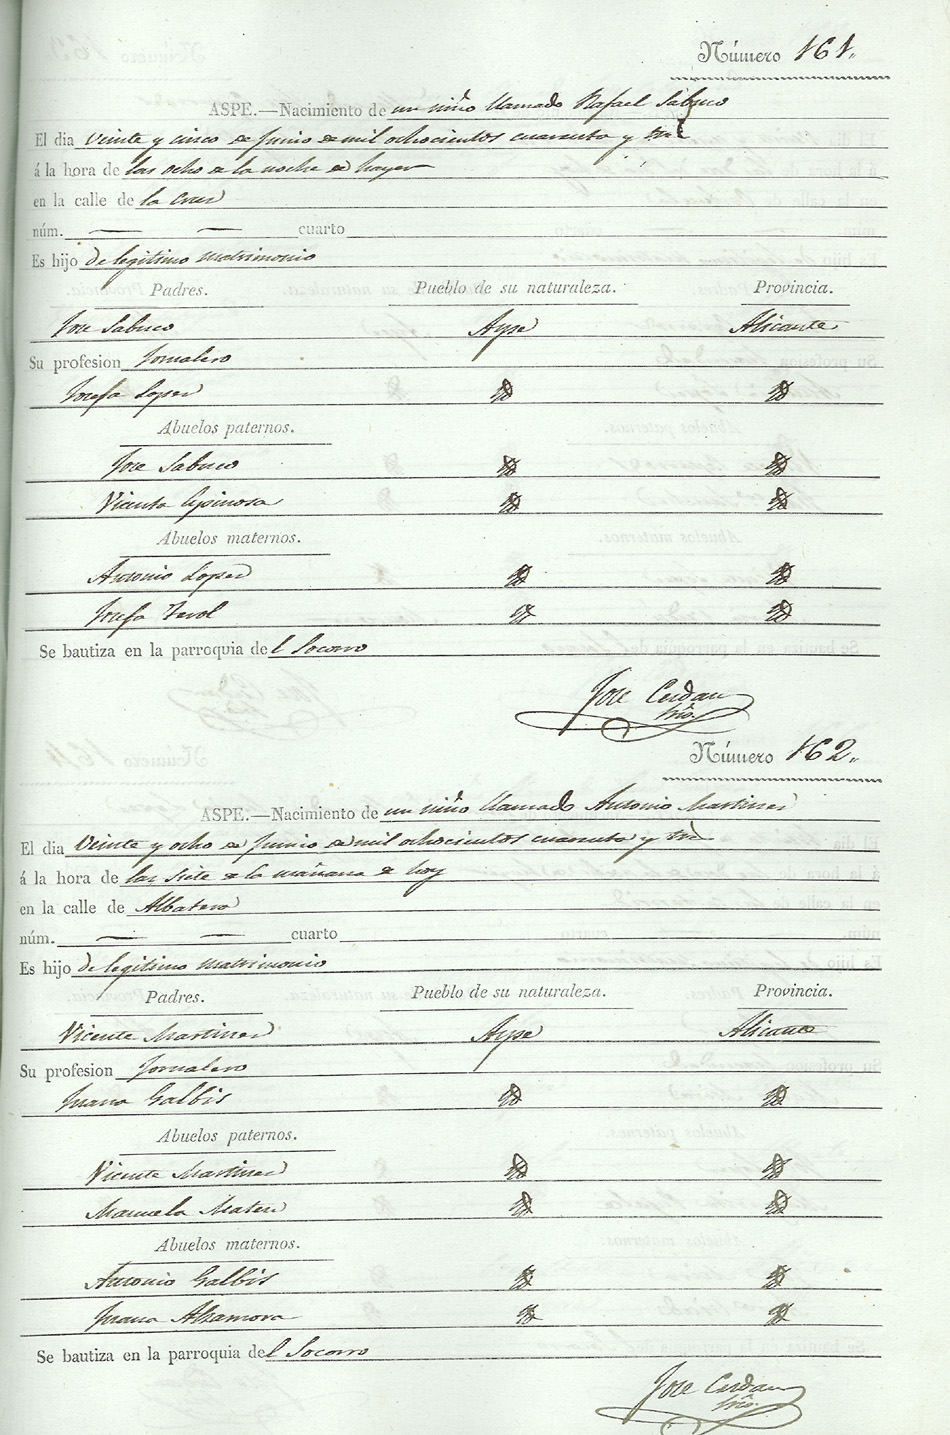 Número 161.
ASPE.—Nacimiento de un niño llamado Rafael Sabuco
El dia veinte y cinco de Junio de mil ochocientos cuarenta y tres
á la hora de las ocho de la noche de hayer
en la calle de la Cruz
núm. — — cuarto
Es hijo de legitimo matrimonio
Padres. Pueblo de su naturaleza. Provincia.
Jose Sabuco Aspe Alicante
Su profesion Jornalero
Josefa Lopez
Abuelos paternos.
Jose Sabuco
Vicenta Espinosa
Abuelos maternos.
Antonio Lopez
Josefa Terol
Se bautiza en la parroquia del Socorro
Jose Cerdan
Srio.
Número 162.
ASPE.—Nacimiento de un niño llamado Antonio Martinez
El dia veinte y ocho de Junio de mil ochocientos cuarenta y tres
á la hora de las siete de la mañana de hoy
en la calle de Albatera
núm. — — cuarto
Es hijo de legitimo matrimonio
Padres. Pueblo de su naturaleza. Provincia.
Vicente Martinez Aspe Alicante
Su profesion Jornalero
Juana Galbis
Abuelos paternos.
Vicente Martinez
Manuela Mateu
Abuelos maternos.
Antonio Galbis
Juana Alzamora
Se bautiza en la parroquia del Socorro
Jose Cerdan
Srio.